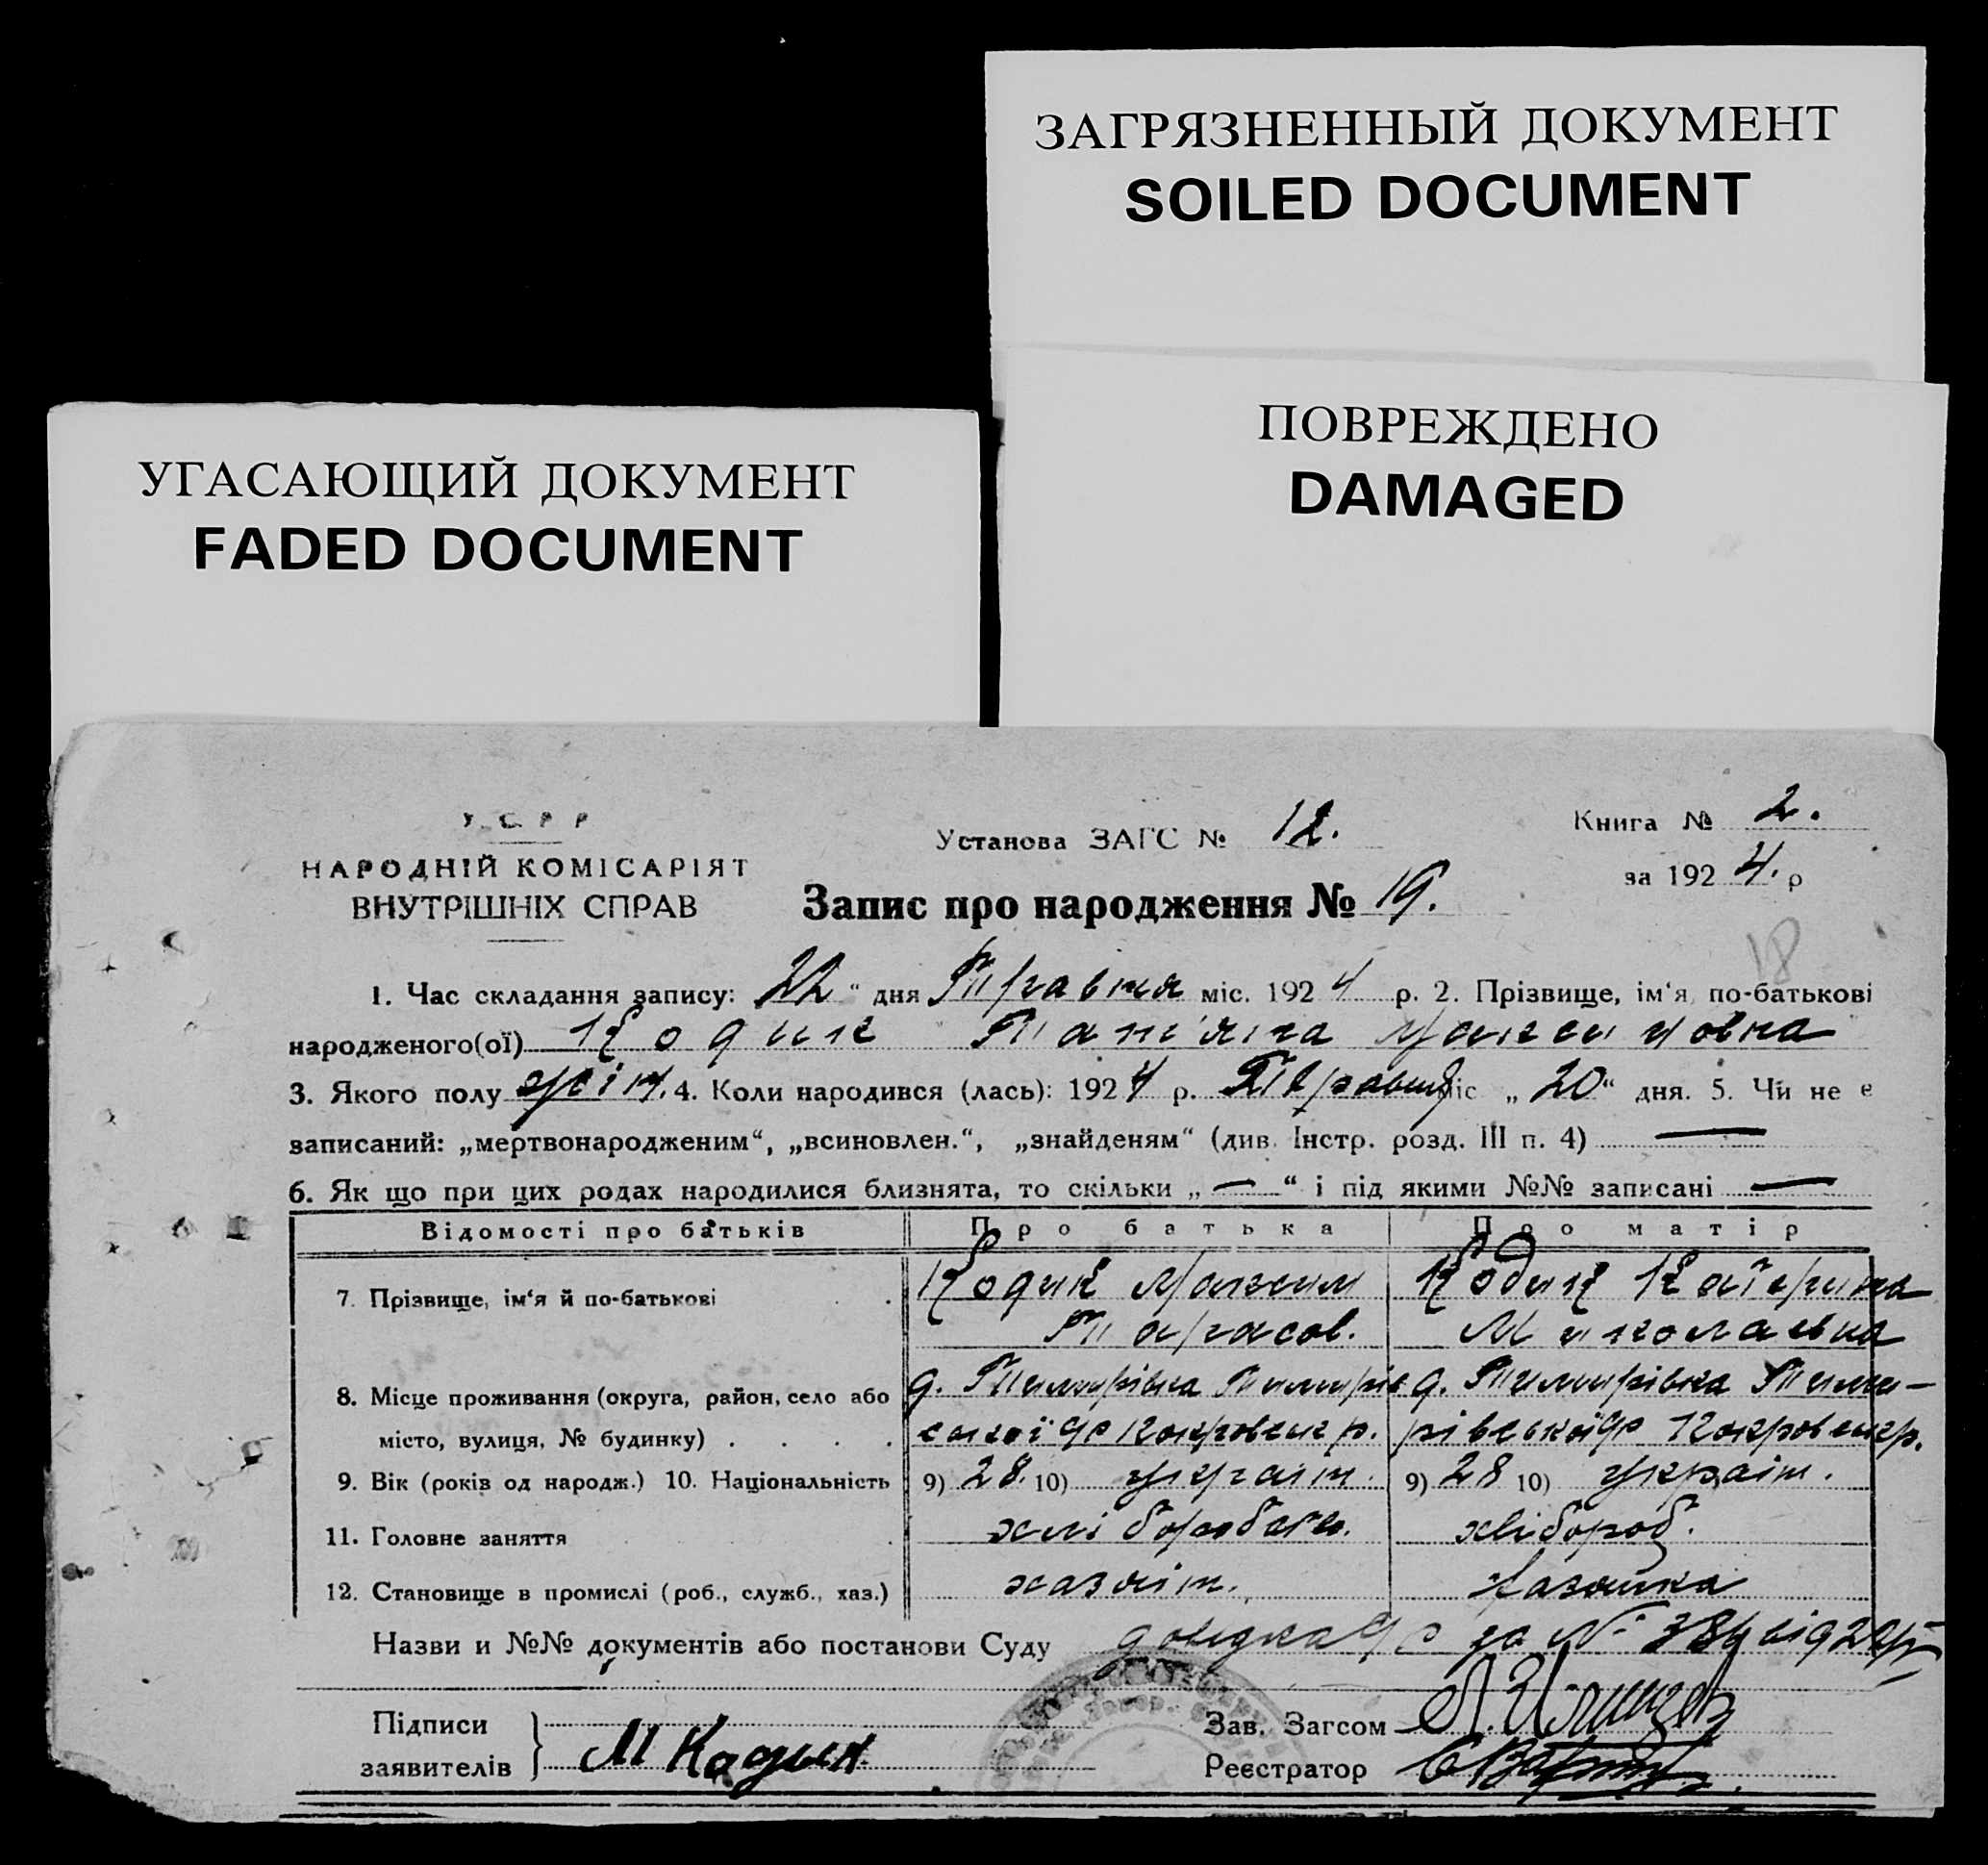 ЗАГРЯЗНЕННЫЙ ДОКУМЕНТ
SOILED DOCUMENT
ПОВРЕЖДЕНО
DAMAGED
УГАСАЮЩИЙ ДОКУМЕНТ
FADED DOCUMENT
У. С. Р. Р
НАРОДНІЙ КОМІСАРІЯТ
ВНУТРІШНІХ СПРАВ
Установа ЗАГС № 12.
Книга № 2.
за 1924. р
Запис про народження № 19.
18
1. Час складання запису: 22 “ дня Травня міс. 1924 р. 2. Прізвище, ім‘я, по-батькові
народженого(ої) Кодик Тат'яна Максимовна
3. Якого полу жін. 4. Коли народився (лась): 1924 р. Травня міс „ 20 “ дня. 5. Чи не є
записаний: „мертвонародженим“, „всиновлен.“, „знайденям“ (див. Інстр. розд. III п. 4) —
6. Як що при цих родах народилися близнята, то скільки „ — “ і під якими №№ записані —
Відомості про батьків Про батька Про матір
7. Прізвище, ім‘я й по-батькові Кодик Максим Кодик Катерина
Тарасов. Миколаевна
8. Місце проживання (округа, район, село або д. д.
місто, вулиця, № будинку) . . . .
9. Вік (років од народж.) 10. Національність 9) 28. 10) україн. 9) 28 10) україн.
11. Головне заняття хлібороб.
12. Становище в промислі (роб., служб., хаз.) хазяїн. хазяйка
Назви и №№ документів або постанови Суду за №
Підписи
заявителів } М Кодик
Зав. Загсом
Реєстратор